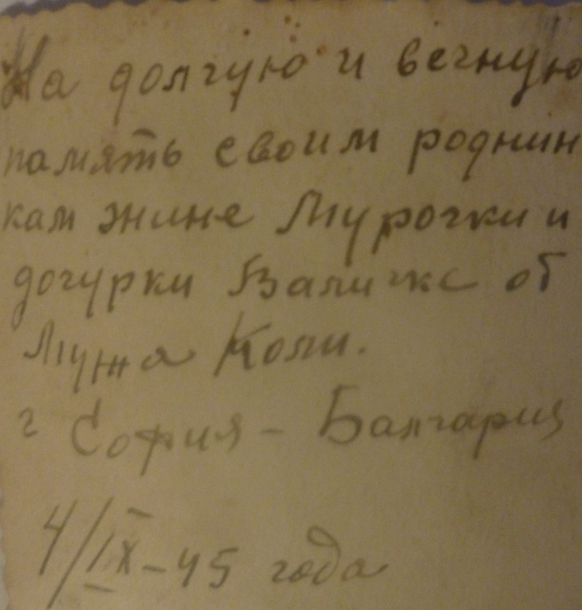 На долгую и вечную
память своим роднин
кам жине Мурочки и
дочурки Валичке от
Мужа Коли.
г София - Балгария
4/IX-45 года